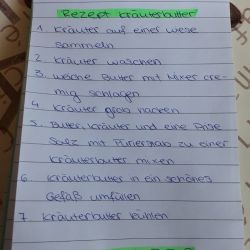 Rezept Kräuterbutter
1 Kräuter auf einer wese
sammeln
2. Kräuter waschen
3. weiche Butter mit Mixer cre-
mig schlagen
4 Kräuter grob hacken
5. Butter, Kräuter und eine Prise
Salz mit Pürierstab zu einer
Kräuterbutter mixen
6. Kräuterbutter in ein schönes
Gefäß umfüllen
7 Kräuterbutter kühlen